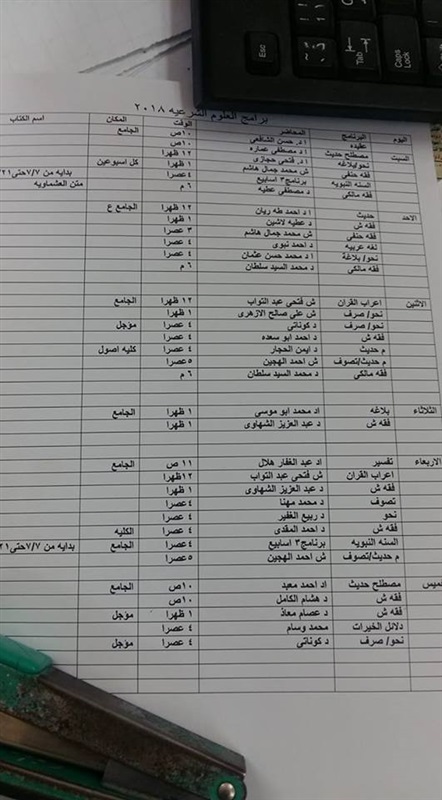 Esc
Tab
Caps Lock
برامج العلوم الشرعيه ٢٠١٨
اليوم البرنامج المحاضر الوقت المكان اسم الكتاب
السبت عقيده ا.د. حسن الشافعي ١٠ص الجامع
مصطلح حديث ا.د. مصطفى عماره ١٠ص
نحو/بلاغه ا.د. فتحى حجازى ١٢ ظهرا
فقه حنفى ش محمد جمال هاشم ١ ظهرا كل اسبوعين
السنه النبويه برنامج٣ اسابيع ٤عصرا بدايه من ٧/٧حتى٢١
فقه مالكى د مصطفى عطيه ٦ م متن العشماويه
الاحد حديث ا د احمد طه ريان ١٢ ظهرا الجامع ع
فقه ش د عطيه لاشين ١ ظهرا
فقه حنفى ش محمد جمال هاشم ٣ عصرا
لغه عربيه د احمد نبوى ٤ عصرا
نحو/ بلاغة ا د محمد حسن عثمان ٤ عصرا
فقه مالكى د محمد السيد سلطان ٦ م
الاثنين اعراب القران ش فتحى عبد التواب ١٢ ظهرا الجامع
نحو/ صرف ش على صالح الازهرى ١ ظهرا
نحو/ صرف د كوناتى ٤ عصرا مؤجل
فقه ش د احمد ابو سعده ٤ عصرا
م حديث د ايمن الحجار ٤ عصرا كليه اصول
م حديث/تصوف ش احمد الهجين ٥عصرا
فقه مالكى د محمد السيد سلطان ٦ م
الثلاثاء بلاغه اد محمد ابو موسى ١ ظهرا الجامع
فقه ش د عبد العزيز الشهاوى ١ ظهرا
الاربعاء تفسير اد عبد الغفار هلال ١١ ص الجامع
اعراب القران ش فتحى عبد التواب ١٢ظهرا
فقه ش د عبد العزيز الشهاوى ١ ظهرا
تصوف د محمد مهنا ٤ عصرا
نحو د ربيع الغفير ٤ عصرا
فقه ش د احمد المقدى ٤ عصرا الكليه
السنه النبويه برنامج٣ اسابيع ٤عصرا الجامع بدايه من ٧/٧حتى٢١
م حديث/تصوف ش احمد الهجين ٥عصرا
ميس مصطلح حديث اد احمد معبد ١٠ص الجامع
فقه ش د هشام الكامل ١٠ص
فقه ش د عصام معاذ ١ ظهرا مؤجل
دلائل الخيرات محمد وسام ٤ عصرا
نحو/ صرف د كوناتى ٤ عصرا مؤجل